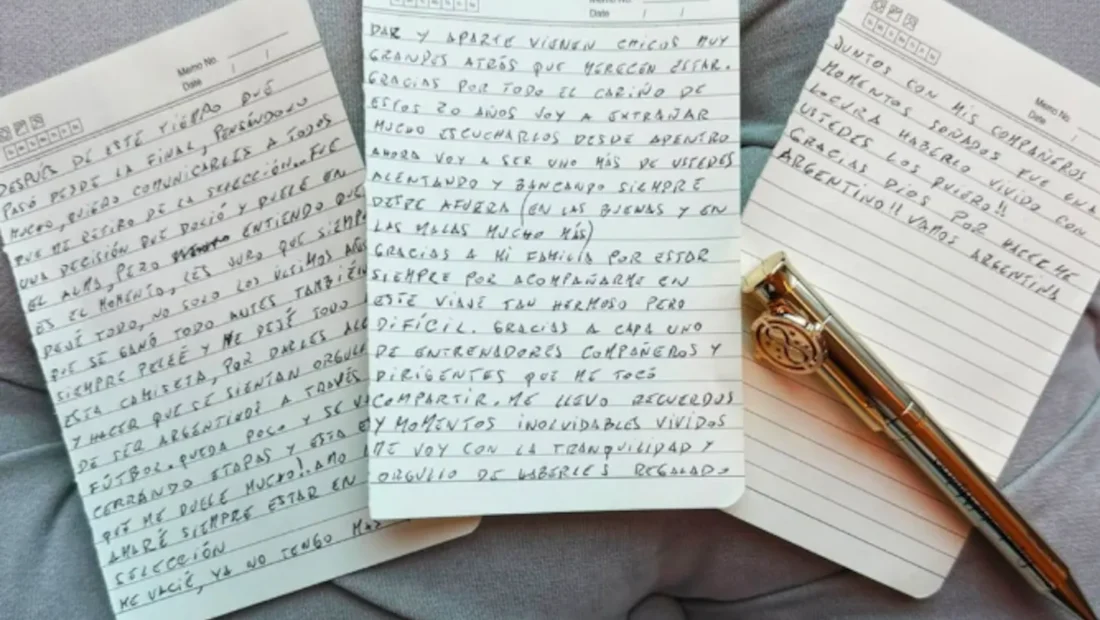 Memo No.
Date / /
DESPUÉS DE ESTE TIEMPO QUE
PASÓ DESDE LA FINAL, PENSÁNDOLO
MUCHO, QUIERO COMUNICARLES A TODOS
QUE ME RETIRO DE LA SELECCIÓN. FUE
UNA DECISIÓN QUE DOLIÓ Y DUELE EN
EL ALMA, PERO ENTIENDO QUE
ES EL MOMENTO, LES JURO QUE SIEMPRE
DEJÉ TODO, NO SOLO LOS ÚLTIMOS AÑOS
QUE SE GANÓ TODO ANTES TAMBIÉN
SIEMPRE PELEÉ Y ME DEJÉ TODO
ESTA CAMISETA, POR DARLES
Y HACER QUE SE SIENTAN
DE SER ARGENTINOS A TRAVÉS
FÚTBOL. QUEDA POCO Y SE
CERRANDO ETAPAS Y ESTA
QUE ME DUELE MUCHO!. AMO
AMARÉ SIEMPRE ESTAR EN
SELECCIÓN
ME VACIÉ, YA NO TENGO MÁS
Memo No.
Date / /
DAR Y APARTE VIENEN CHICOS MUY
GRANDES ATRÁS QUE MERECEN ESTAR.
GRACIAS POR TODO EL CARIÑO DE
ESTOS 20 AÑOS VOY A EXTRAÑAR
MUCHO ESCUCHARLOS DESDE ADENTRO
AHORA VOY A SER UNO MÁS DE USTEDES
ALENTANDO Y BANCANDO SIEMPRE
DESDE AFUERA (EN LAS BUENAS Y EN
LAS MALAS MUCHO MÁS)
GRACIAS A MI FAMILIA POR ESTAR
SIEMPRE POR ACOMPAÑARME EN
ESTE VIAJE TAN HERMOSO PERO
DIFÍCIL. GRACIAS A CADA UNO
DE ENTRENADORES COMPAÑEROS Y
DIRIGENTES QUE ME TOCÓ
COMPARTIR. ME LLEVO RECUERDOS
Y MOMENTOS INOLVIDABLES VIVIDOS
ME VOY CON LA TRANQUILIDAD Y
ORGULLO DE HABERLES REGALADO
Memo No.
Date /
JUNTOS CON MIS COMPAÑEROS
MOMENTOS SOÑADOS FUE UNA
LOCURA HABERLO VIVIDO CON
USTEDES LOS QUIERO!!
GRACIAS DIOS POR HACERME
ARGENTINO!! VAMOS ARGENTINA